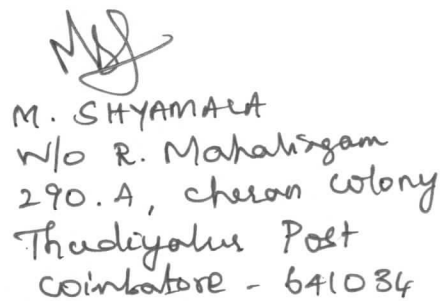 M. SHYAMALA
W/o R. Mahalingam
290.A, cheran colony
Thudiyalur Post
Coimbatore - 641034